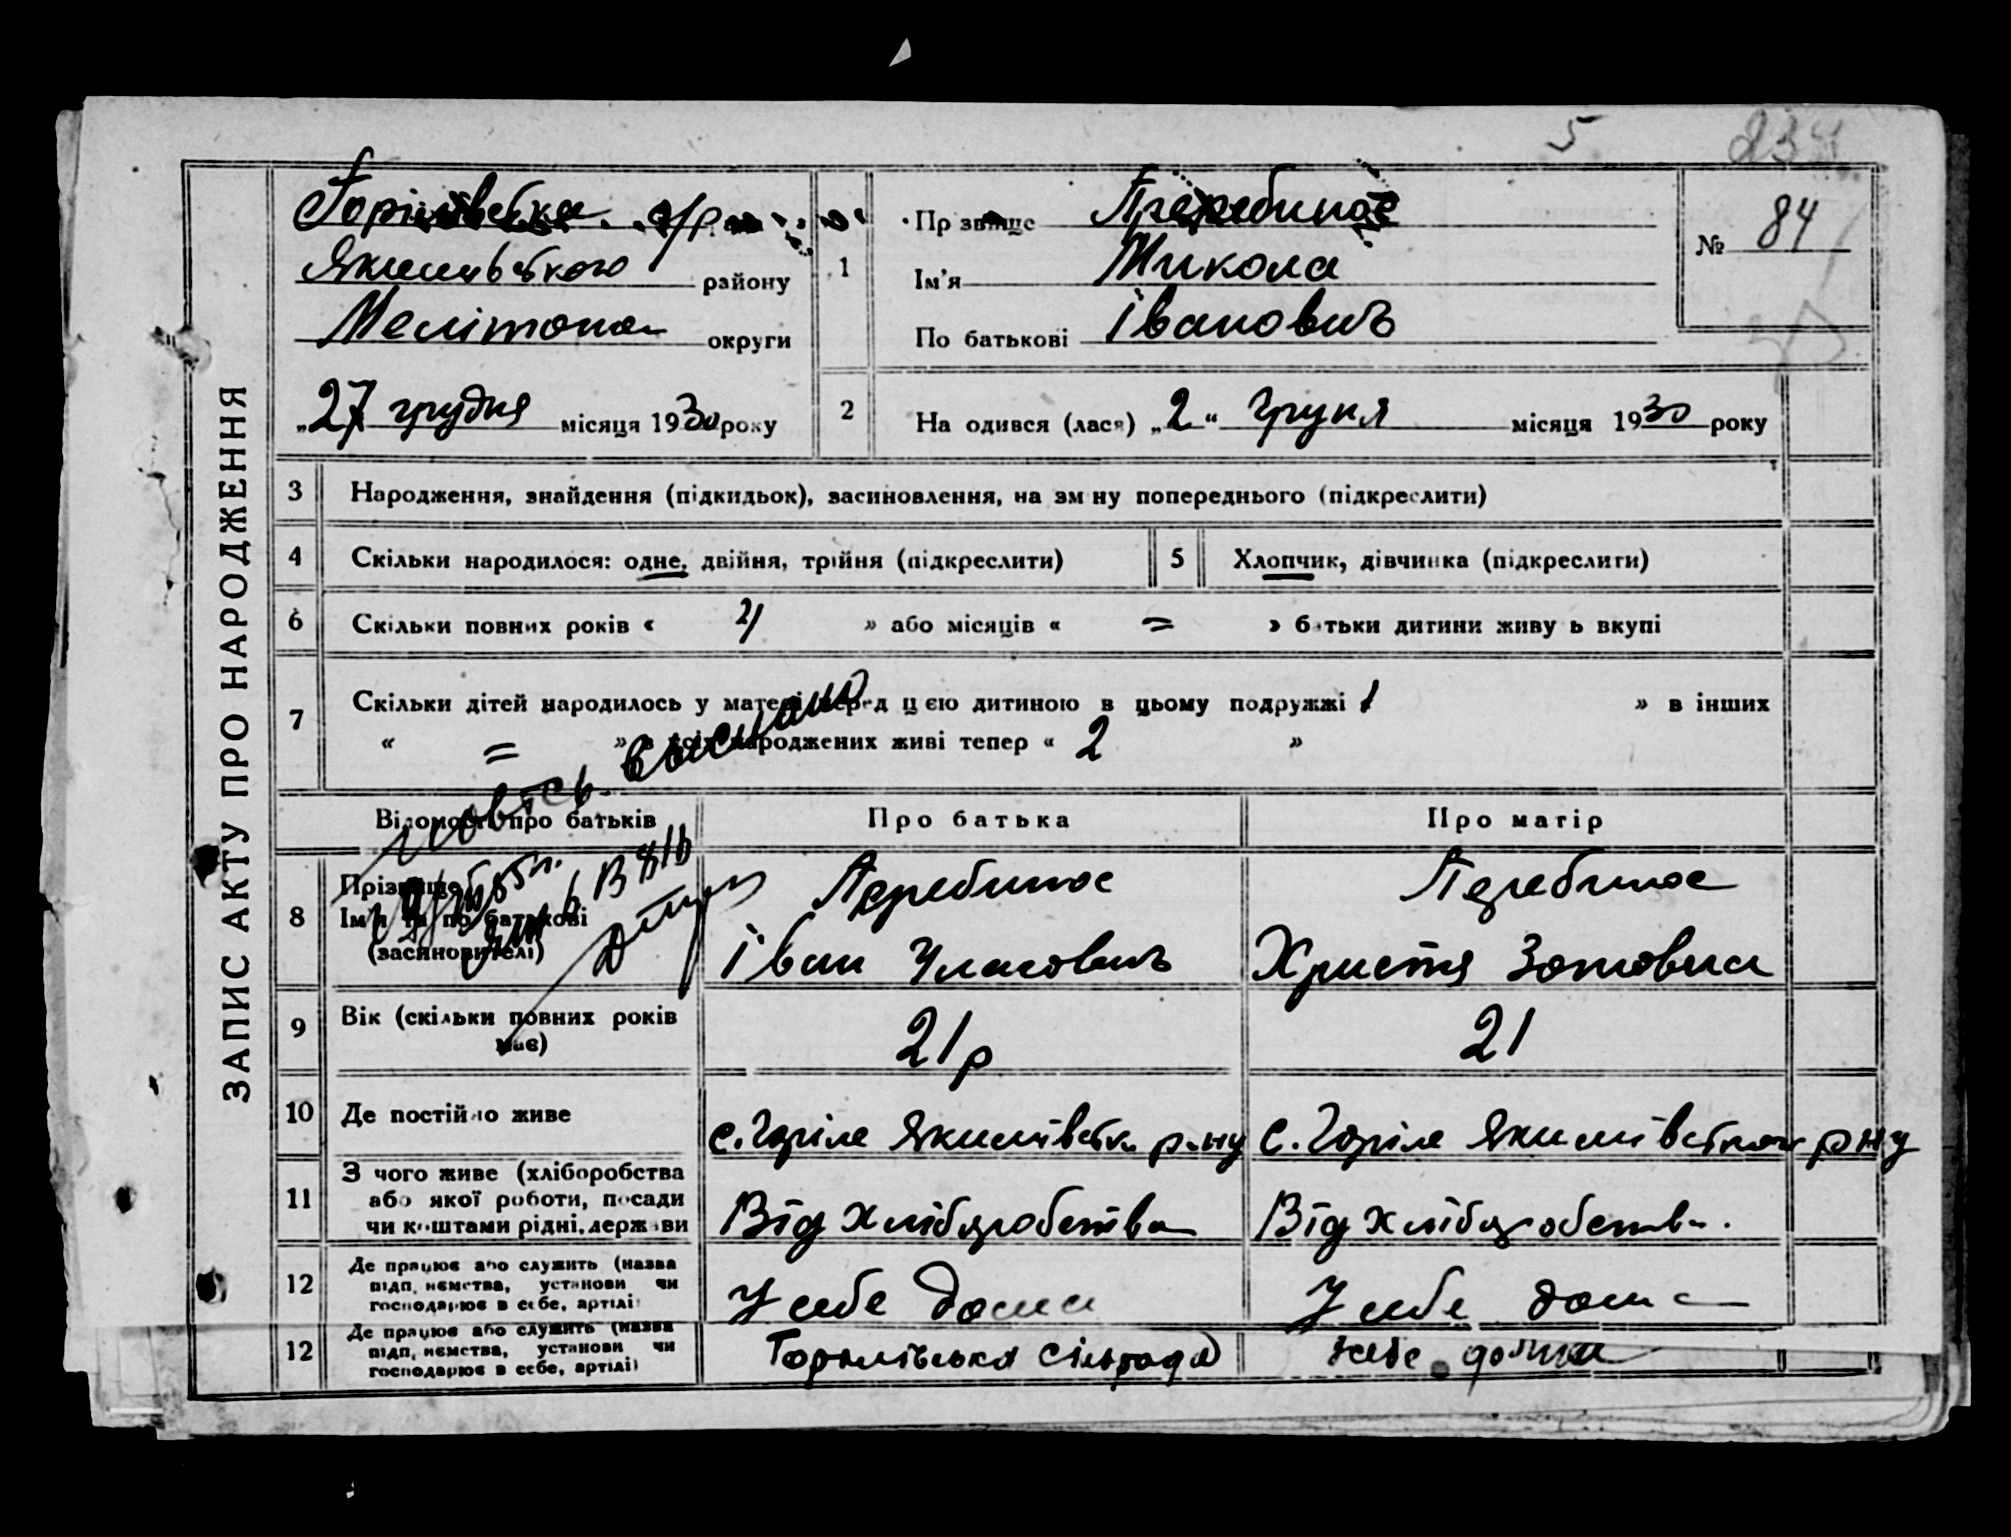 5 234
ЗАПИС АКТУ ПРО НАРОДЖЕННЯ
Горілівська с/р
Якимівського району
Мелітопол округи
„27 грудня місяця 1930 року
1
Пр звище Перебинос
Ім'я Микола
По батькові Іванович
№ 84
2
На одився (лася) „2“ Груня місяця 1930 року
3 Народження, знайдення (підкидьок), засиновлення, на зм ну попереднього (підкреслити)
4 Скільки народилося: одне, двійня, трійня (підкреслити)
5 Хлопчик, дівчинка (підкреслити)
6 Скільки повних років « 2 » або місяців « = » б тьки дитини живу ь вкупі
7 Скільки дітей народилось у матері перед цією дитиною в цьому подружжі 1 » в інших
« = » з усіх народжених живі тепер « 2 »
Відомості про батьків Про батька Про матір
8 Прізвище
Ім'я та по батькові
(засиновителі)
Перебинос
Іван Уласович
Перебинос
Христя Зотовна
9 Вік (скільки повних років
має)
21 р
21
10 Де постійно живе
с. Горіле Якимівськ р-ну
с. Горіле Якимівського р ну
11 З чого живе (хліборобства
або якої роботи, посади
чи коштами рідні, держави
Від хліборобства
Від хліборобств.
12 Де працює або служить (назва
підп. немства, установи чи
господарює в себе, артілі)
У себе дома
У себе дома
12 Де працює або служить (назва
підп. немства, установи чи
господарює в себе, артілі)
Горілівська сільрада
себе дома